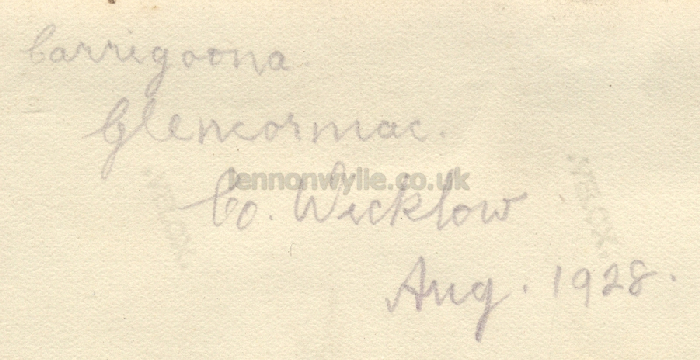 Carrigoona
Glencormac.
lennonwylie.co.uk
Co. Wicklow
VELOX
VELOX
Aug. 1928.